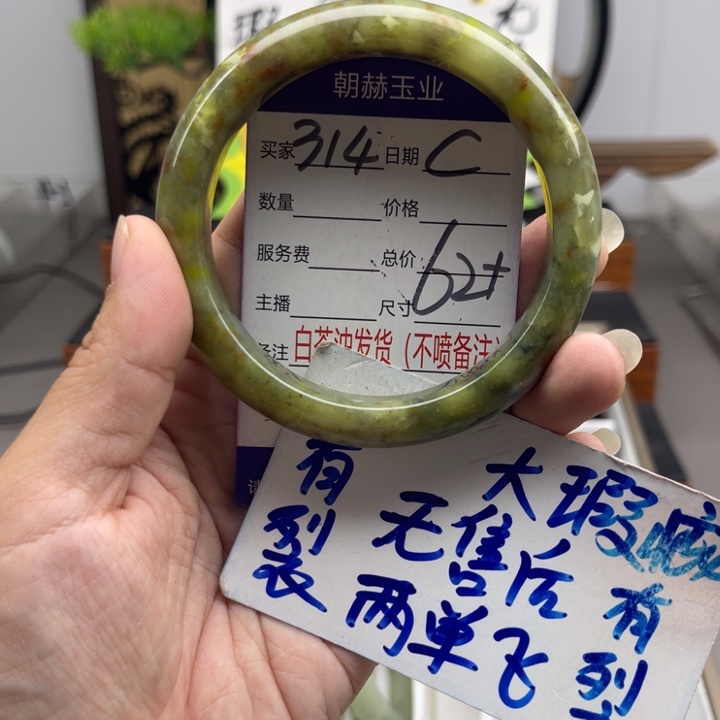 朝赫玉业
买家 314 日期 C
数量 价格
服务费 总价
主播 尺寸 62+
备注 白茶油发货(不喷备注)
有裂
大瑕疵
无售后
两单飞
有裂